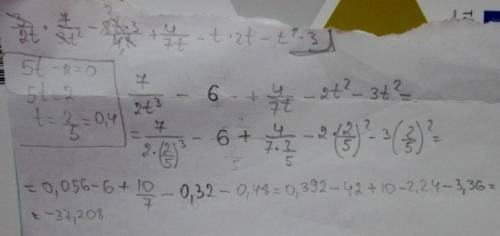 2/2t · 7/2t² - 2t·3/4t + 4/7t - t·2t - t²·3
5t - 2 = 0
5t = 2
t = 2/5 = 0,4
7/2t³ - 6 + 4/7t - 2t² - 3t² =
= 7/2·(2/5)³ - 6 + 4/7·2/5 - 2·(2/5)² - 3(2/5)² =
= 0,056 - 6 + 10/7 - 0,32 - 0,48 = 0,392 - 42 + 10 - 2,24 - 3,36 =
= -37,208